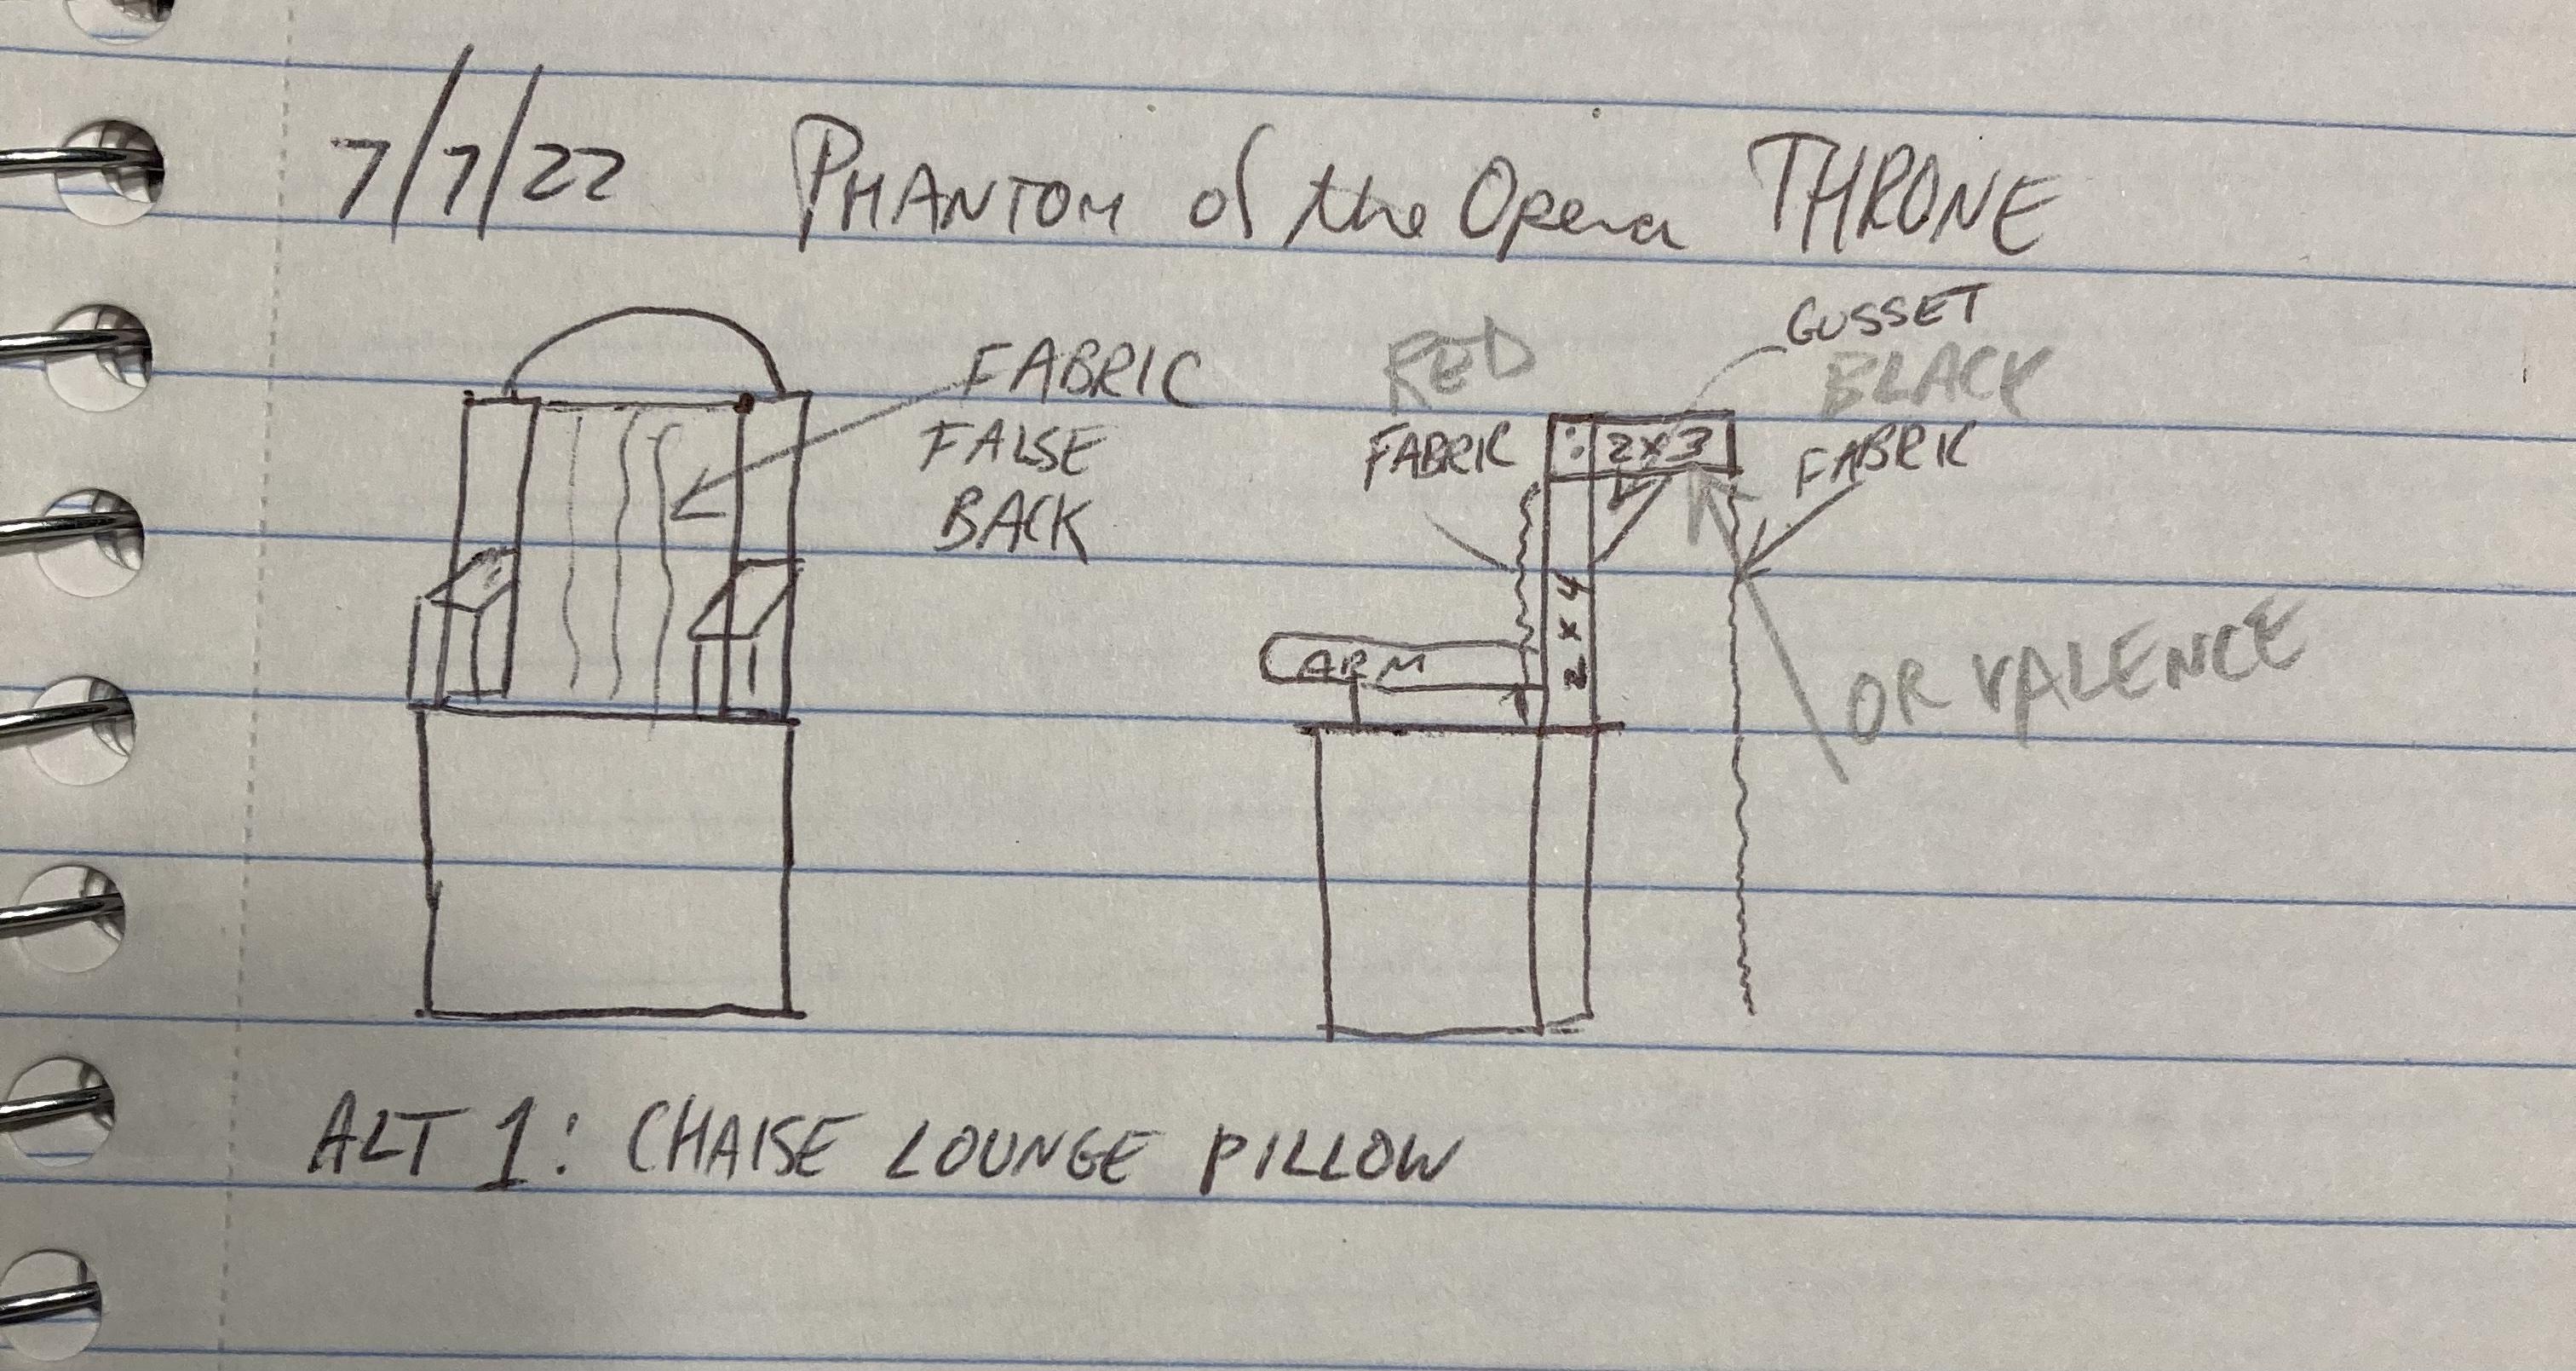 7/7/22 PHANTOM of the Opera THRONE
FABRIC
FALSE
BACK
RED
FABRIC
GUSSET
BLACK
FABRIC
: 2x3
2x4
ARM
OR VALENCE
ALT 1: CHAISE LOUNGE PILLOW